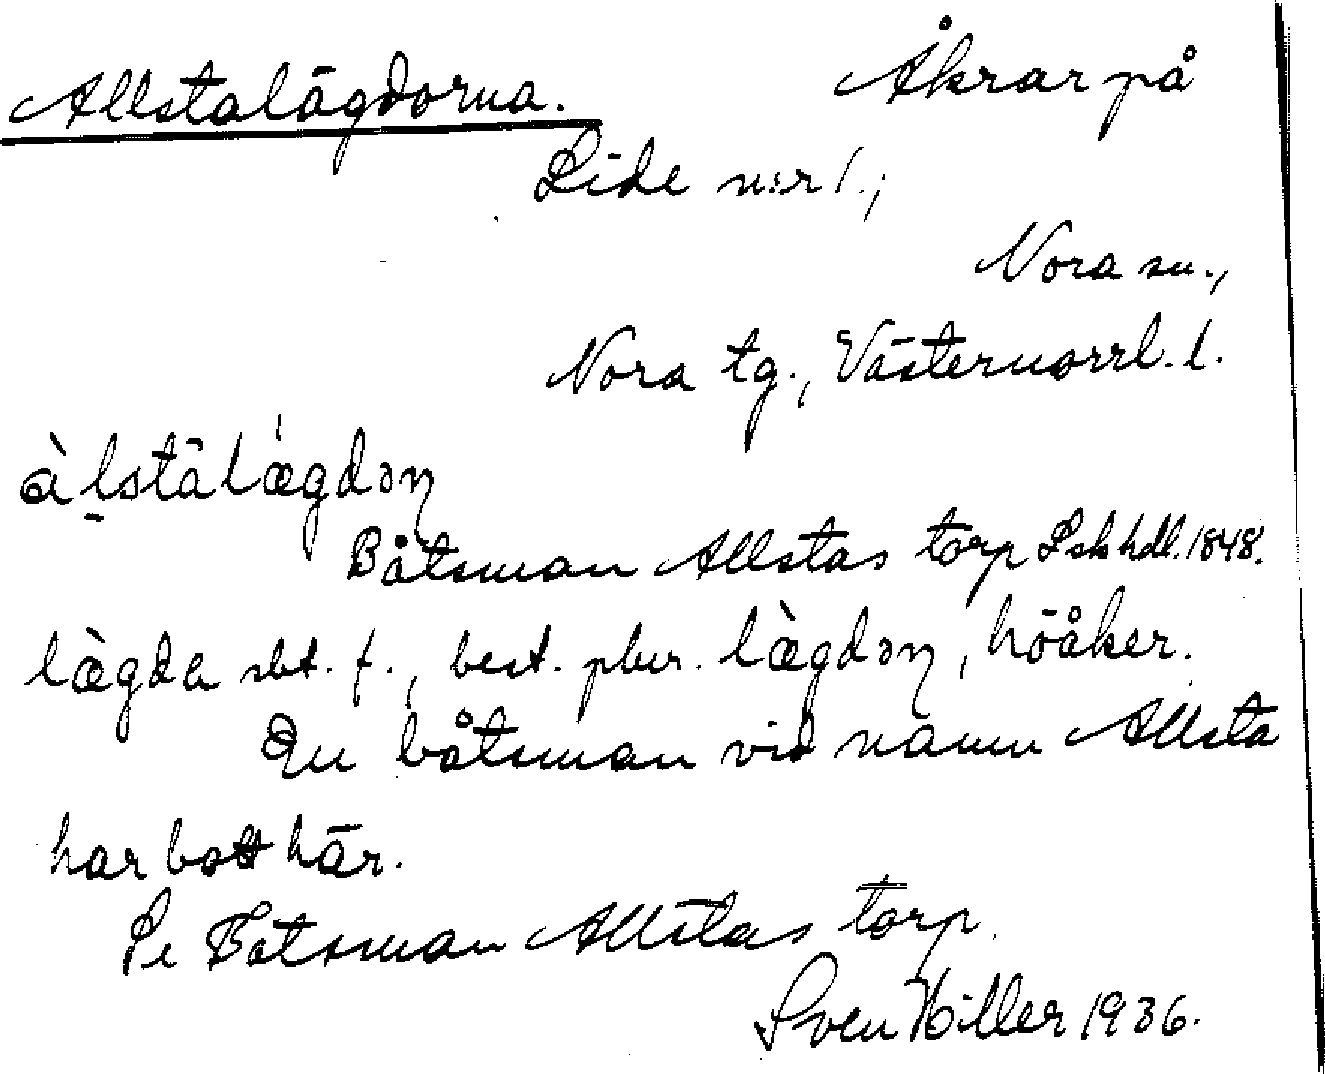 Allstalägdorna. Åkrar på
Lide n:r 1.,
Nora sn.,
Nora tg., Västernorrl. l.
àl̠stālǽgdɔɳ
Båtsman Allstas torp Lskhdl. 1848.
lǽgda sbt. f., best. plur. lǽgdɔɳ, höåker.
En båtsman vid namn Allsta
har bott här.
Se Båtsman Allstas torp.
Sven Hiller 1936.